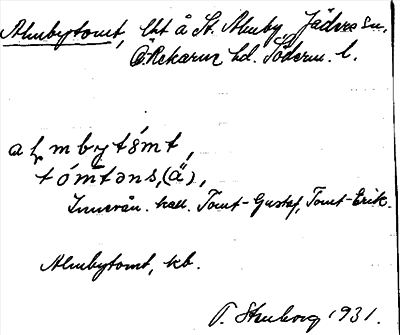 Almbytomt, lht å St. Almby Jäders sn,
Ö. Rekarne hd. Söderm. l.
almbytómt,
tómtǝns, (ä),
Innevån. kall. Tomt-Gustaf, Tomt-Erik.
Almbytomt, kb.
T. Stenborg 1931.